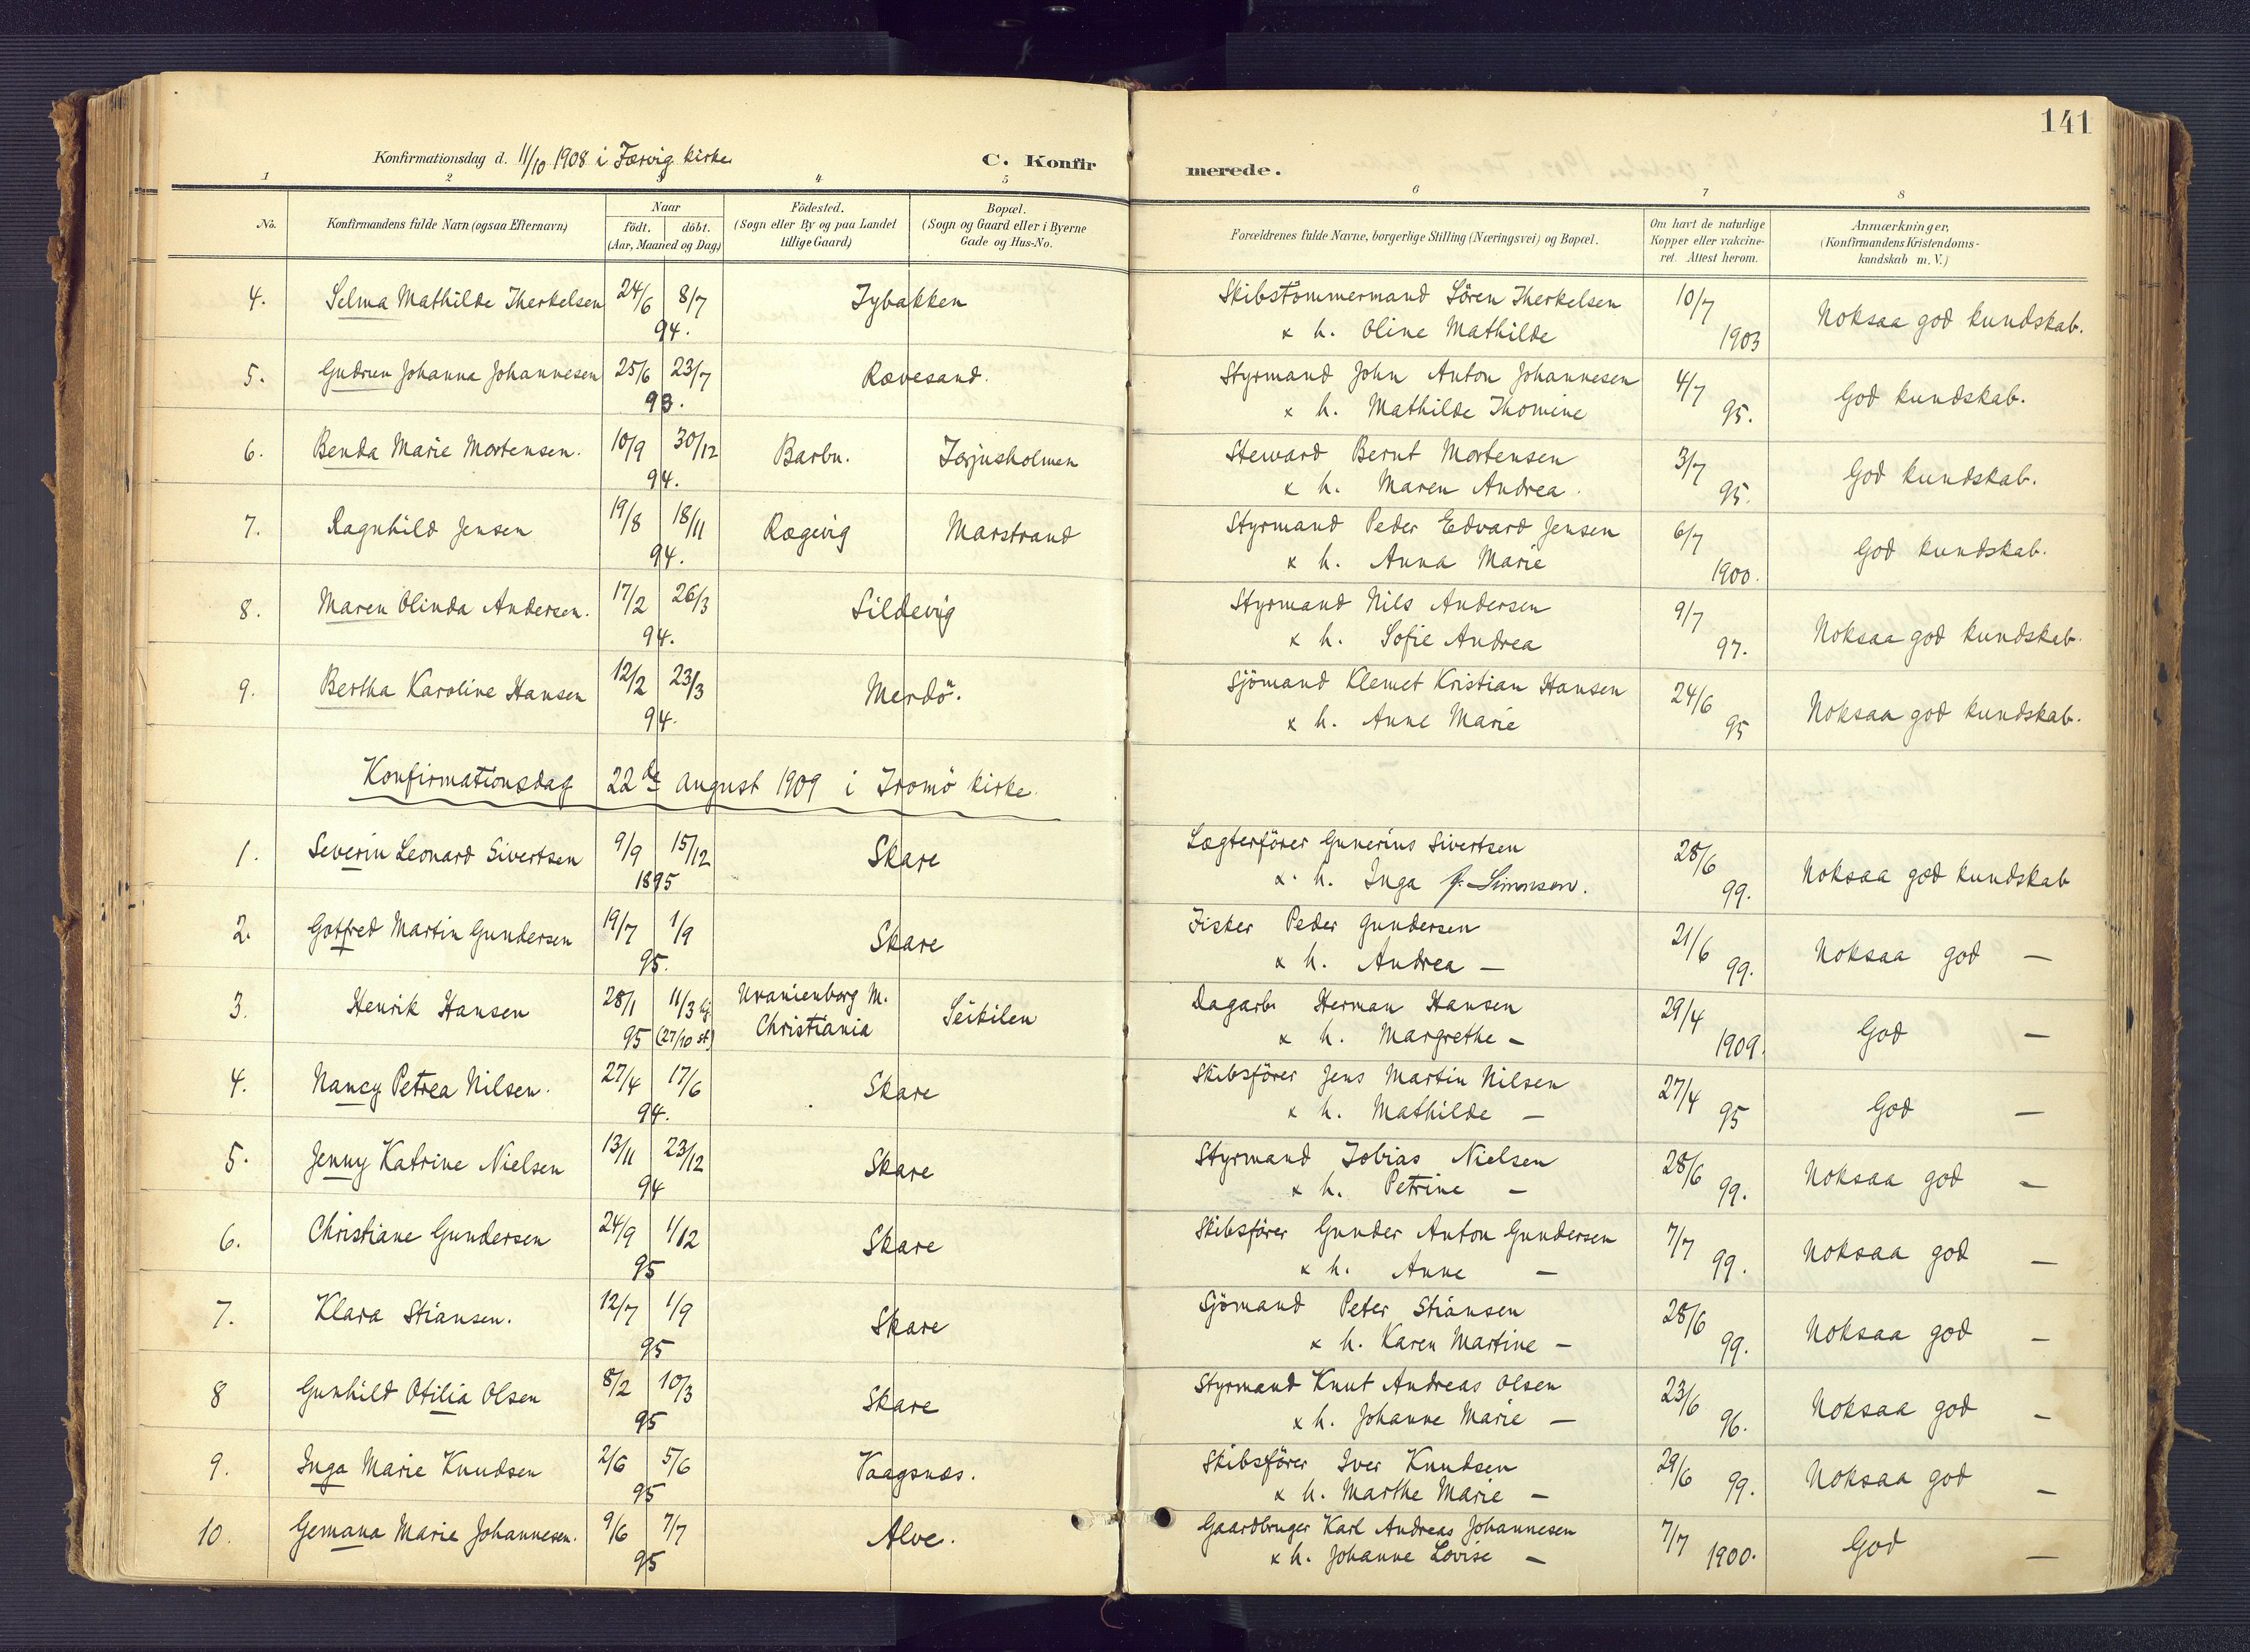 141
Konfirmationsdag d. 11/10 1908 i Færvig kirke
C. Konfirmerede.
1 2 3 4 5 6 7 8
No. Konfirmandens fulde Navn (ogsaa Efternavn) Naar födt. döbt. (Aar, Maaned og Dag) Födested. (Sogn eller By og paa Landet tillige Gaard) Bopæl. (Sogn og Gaard eller i Byerne Gade og Hus-No. Forældrenes fulde Navne, borgerlige Stilling (Næringsvei) og Bopæl. Om havt de naturlige Kopper eller vakcineret. Attest herom. Anmærkninger, (Konfirmandens Kristendomskundskab m. V.)
4. Selma Mathilde Therkelsen 24/6 8/7 Tybakken Skibstömmermand Sören Therkelsen 10/7 Noksaa god kundskab.
94. & h. Oline Mathilde 1903
5. Gudrun Johanna Johannesen 25/6 23/7 Rævesand. Styrmand John Anton Johannesen 4/7 God kundskab.
93. & h. Mathilde Thomine 95.
6. Benda Marie Mortensen. 10/9 30/12 Barbu. Torjusholmen Steward Bernt Mortensen 3/7 God kundskab.
94. & h. Maren Andrea. 95.
7. Ragnhild Jensen 19/8 18/11 Rægevig Marstrand Styrmand Peder Edvard Jensen 6/7 God kundskab.
94. & h. Anna Marie 1900.
8. Maren Olinda Andersen. 17/2 26/3 Sildevig Styrmand Nils Andersen 9/7 Noksaa god kundskab.
94. & h. Sofie Andrea 97.
9. Bertha Karoline Hansen 12/2 23/3 Merdö. Sjömand Klemet Kristian Hansen 24/6 Noksaa god kundskab.
94. & h. Anne Marie 95
Konfirmationsdag 22de august 1909 i Tromö kirke.
1. Severin Leonard Sivertsen 9/9 15/12 Skare Lægterförer Gunerius Sivertsen 28/6 Noksaa god kundskab
1895 & h. Inga f. Simonsen. 99.
2. Gotfred Martin Gundersen 19/7 1/9 Skare Fisker Peder Gundersen 21/6 Noksaa god —
95. & h. Andrea — 99.
3. Henrik Hansen 28/1 11/3 hj. Uranienborg M. Christiania Seikilen Dagarb. Herman Hansen 29/4 God —
95 (27/10 st) & h. Margrethe — 1909.
4. Nancy Petrea Nilsen. 27/4 17/6 Skare Skibsförer Jens Martin Nilsen 27/4 God —
94. & h. Mathilde — 95
5. Jenny Katrine Nielsen 13/11 23/12 Skare Styrmand Tobias Nielsen 28/6 Noksaa god —
94 & h. Petrine — 99.
6. Christiane Gundersen 24/9 1/12 Skare Skibsförer Gunder Anton Gundersen 7/7 Noksaa god —
95 & h. Anne — 99.
7. Klara Stiansen. 12/7 1/9 Skare Sjömand Peter Stiansen 28/6 Noksaa god —
95 & h. Karen Martine — 99.
8 Gunhild Otilia Olsen 8/2 10/3 Skare Styrmand Knut Andreas Olsen 23/6 Noksaa god —
95 & h. Johanne Marie — 96.
9. Inga Marie Knudsen 2/6 5/6 Vaagsnæs. Skibsförer Iver Knudsen 29/6 Noksaa god —
95 & h. Marthe Marie — 99.
10. Gemana Marie Johannesen. 9/6 7/7 Alve. Gaardbruger Karl Andreas Johannesen 7/7 God —
95 & h. Johanne Lovise — 1900.